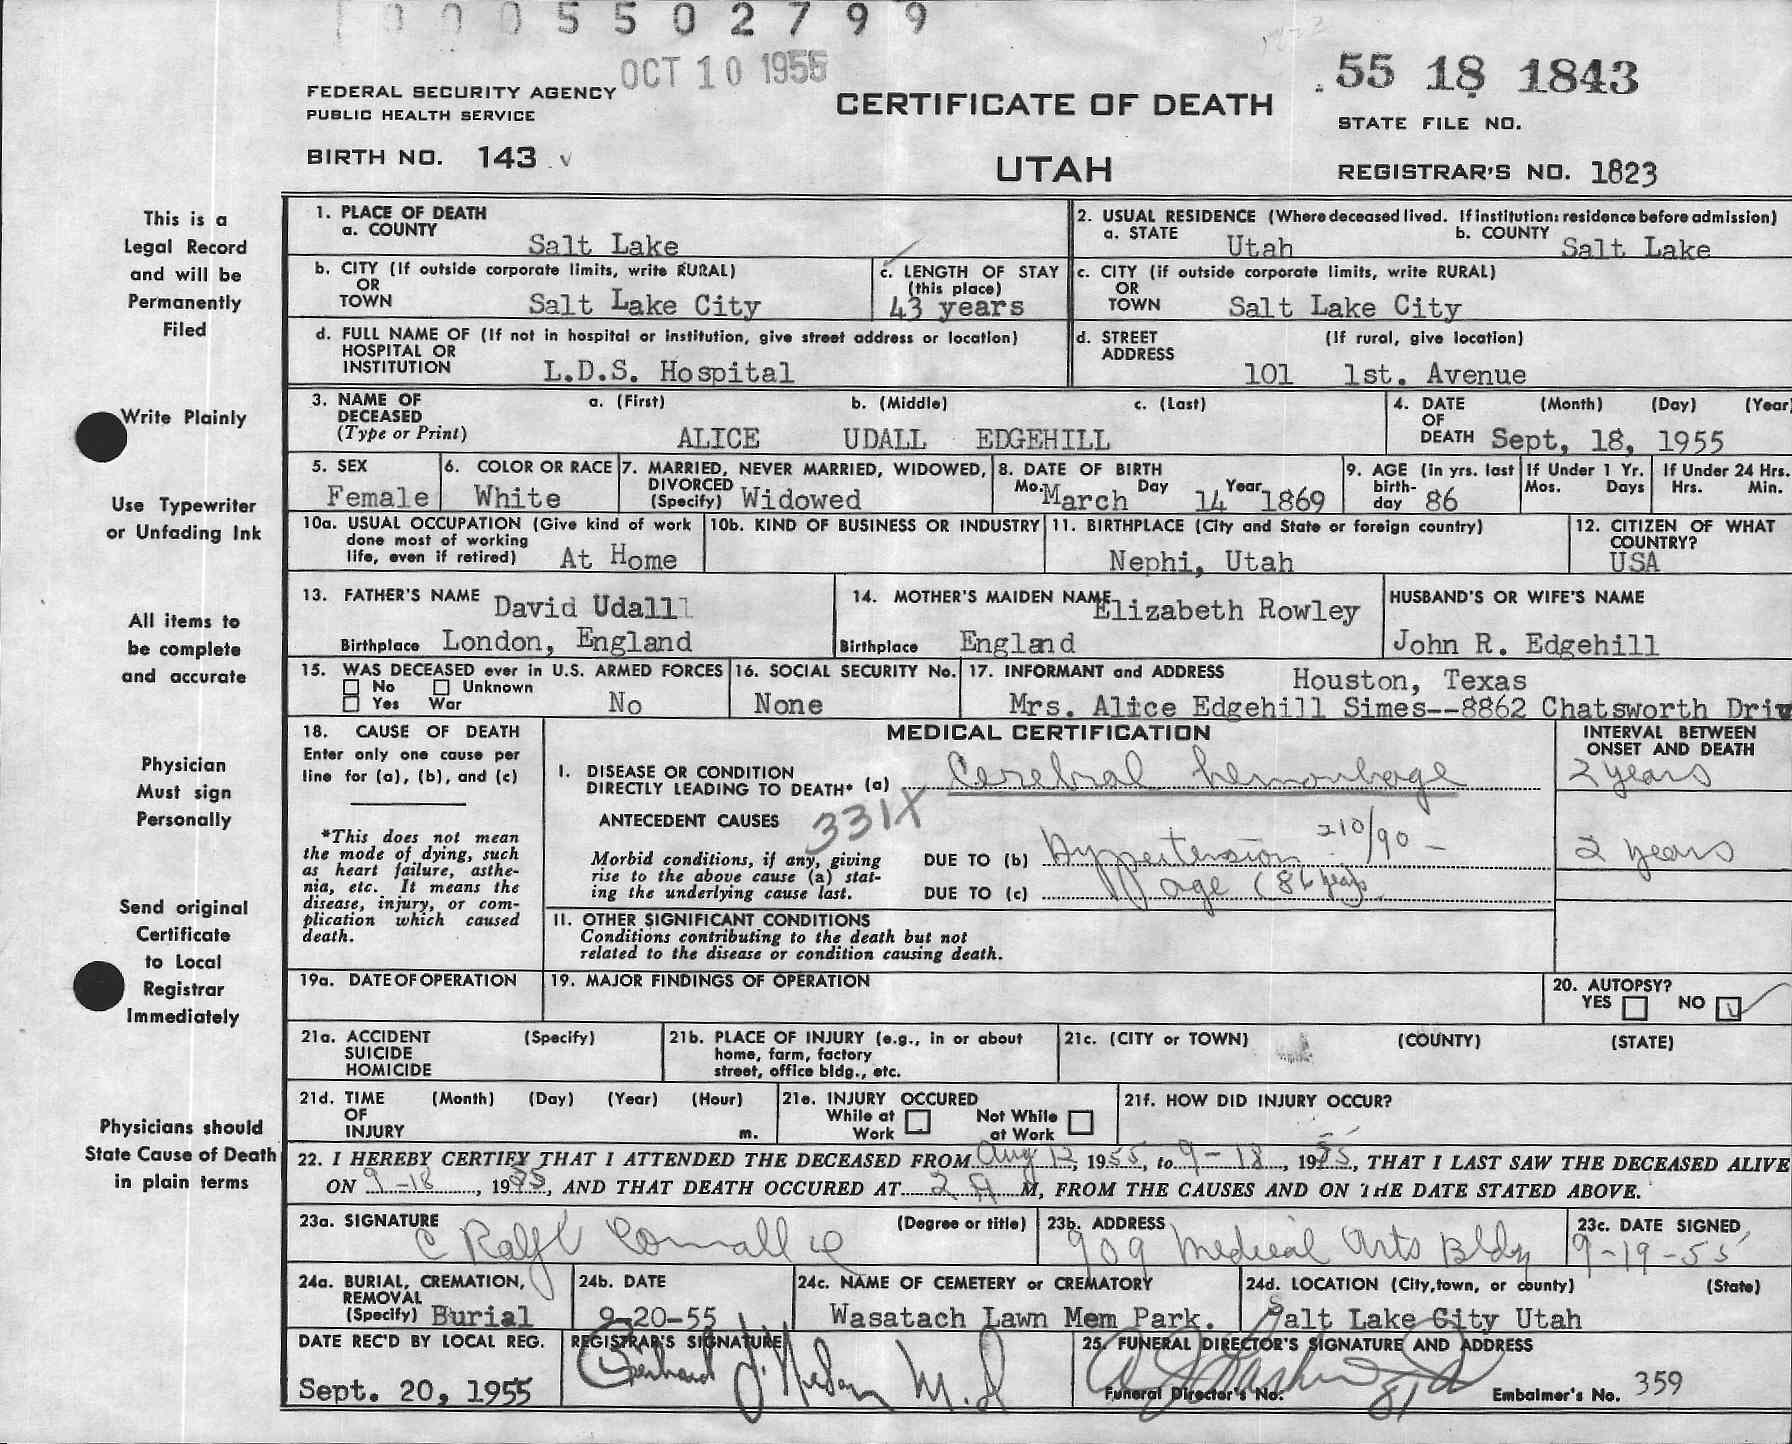 0005502799
OCT 10 1955
.55 18 1843
FEDERAL SECURITY AGENCY
PUBLIC HEALTH SERVICE
CERTIFICATE OF DEATH
STATE FILE NO.
BIRTH NO. 143
UTAH
REGISTRAR'S NO. 1823
This is a
Legal Record
and will be
Permanently
Filed
Write Plainly
Use Typewriter
or Unfading Ink
All items to
be complete
and accurate
Physician
Must sign
Personally
Send original
Certificate
to Local
Registrar
Immediately
Physicians should
State Cause of Death
in plain terms
1. PLACE OF DEATH
a. COUNTY
Salt Lake
2. USUAL RESIDENCE (Where deceased lived. If institution: residence before admission)
a. STATE Utah b. COUNTY Salt Lake
b. CITY (If outside corporate limits, write RURAL)
OR
TOWN Salt Lake City
c. LENGTH OF STAY
(this place)
43 years
c. CITY (if outside corporate limits, write RURAL)
OR
TOWN Salt Lake City
d. FULL NAME OF (If not in hospital or institution, give street address or location)
HOSPITAL OR
INSTITUTION L.D.S. Hospital
d. STREET (If rural, give location)
ADDRESS
101 1st. Avenue
3. NAME OF a. (First) b. (Middle) c. (Last)
DECEASED
(Type or Print) ALICE UDALL EDGEHILL
4. DATE (Month) (Day) (Year
OF
DEATH Sept, 18, 1955
5. SEX
Female
6. COLOR OR RACE
White
7. MARRIED, NEVER MARRIED, WIDOWED,
DIVORCED
(Specify) Widowed
8. DATE OF BIRTH
Mo. March Day 14 Year 1869
9. AGE (in yrs. last
birth-
day 86
If Under 1 Yr.
Mos. Days
If Under 24 Hrs.
Hrs. Min.
10a. USUAL OCCUPATION (Give kind of work
done most of working
life, even if retired) At Home
10b. KIND OF BUSINESS OR INDUSTRY
11. BIRTHPLACE (City and State or foreign country)
Nephi, Utah
12. CITIZEN OF WHAT
COUNTRY?
USA
13. FATHER'S NAME David Udall
Birthplace London, England
14. MOTHER'S MAIDEN NAME Elizabeth Rowley
Birthplace England
HUSBAND'S OR WIFE'S NAME
John R. Edgehill
15. WAS DECEASED ever in U.S. ARMED FORCES
No Unknown
Yes War No
16. SOCIAL SECURITY No.
None
17. INFORMANT and ADDRESS Houston, Texas
Mrs. Alice Edgehill Simes--8862 Chatsworth Driv
18. CAUSE OF DEATH
Enter only one cause per
line for (a), (b), and (c)
*This does not mean
the mode of dying, such
as heart failure, asthe-
nia, etc. It means the
disease, injury, or com-
plication which caused
death.
MEDICAL CERTIFICATION
INTERVAL BETWEEN
ONSET AND DEATH
I. DISEASE OR CONDITION
DIRECTLY LEADING TO DEATH* (a) Cerebral hemorrhage 2 years
ANTECEDENT CAUSES 331X
Morbid conditions, if any, giving
rise to the above cause (a) stat-
ing the underlying cause last.
DUE TO (b) Hypertension 210/90 - 2 years
DUE TO (c) age (86 years
II. OTHER SIGNIFICANT CONDITIONS
Conditions contributing to the death but not
related to the disease or condition causing death.
19a. DATE OF OPERATION
19. MAJOR FINDINGS OF OPERATION
20. AUTOPSY?
YES NO
21a. ACCIDENT (Specify)
SUICIDE
HOMICIDE
21b. PLACE OF INJURY (e.g., in or about
home, farm, factory
street, office bldg., etc.
21c. (CITY or TOWN) (COUNTY) (STATE)
21d. TIME (Month) (Day) (Year) (Hour)
OF
INJURY m.
21e. INJURY OCCURED
While at Not While
Work at Work
21f. HOW DID INJURY OCCUR?
22. I HEREBY CERTIFY THAT I ATTENDED THE DECEASED FROM Aug 12, 1955, to 9-18, 1955, THAT I LAST SAW THE DECEASED ALIVE
ON 9-18, 1955, AND THAT DEATH OCCURED AT 2 A M, FROM THE CAUSES AND ON THE DATE STATED ABOVE.
23a. SIGNATURE (Degree or title)
C Ralph
23b. ADDRESS
909 Medical Arts Bldg
23c. DATE SIGNED
9-19-55
24a. BURIAL, CREMATION,
REMOVAL
(Specify) Burial
24b. DATE
9-20-55
24c. NAME OF CEMETERY or CREMATORY
Wasatach Lawn Mem Park.
24d. LOCATION (City, town, or county) (State)
Salt Lake City Utah
DATE REC'D BY LOCAL REG.
Sept. 20, 1955
REGISTRAR'S SIGNATURE
M.D
25. FUNERAL DIRECTOR'S SIGNATURE AND ADDRESS
Funeral Director's No. 81 Embalmer's No. 359